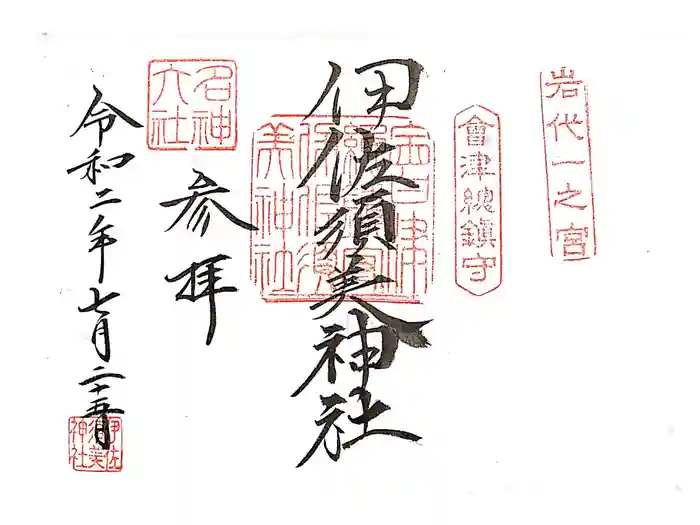 岩代一之宮
會津總鎮守
伊佐須美神社
名神大社
参拝
令和二年七月二十五日
伊佐須美神社